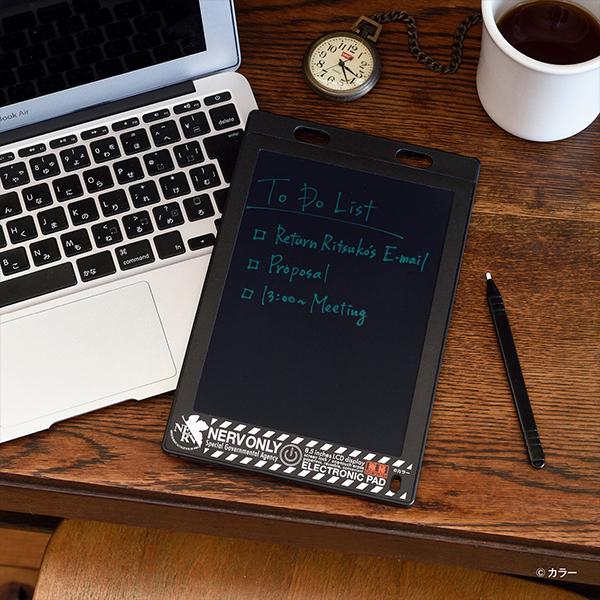 Book Air
delete
control
option
command
To Do List
□ Return Ritsuko's E-mail
□ Proposal
□ 13:00~ Meeting
NERV
NERV ONLY
Special Governmental Agency
8.5 inches LCD display
ELECTRONIC PAD
©カラー
© カラー